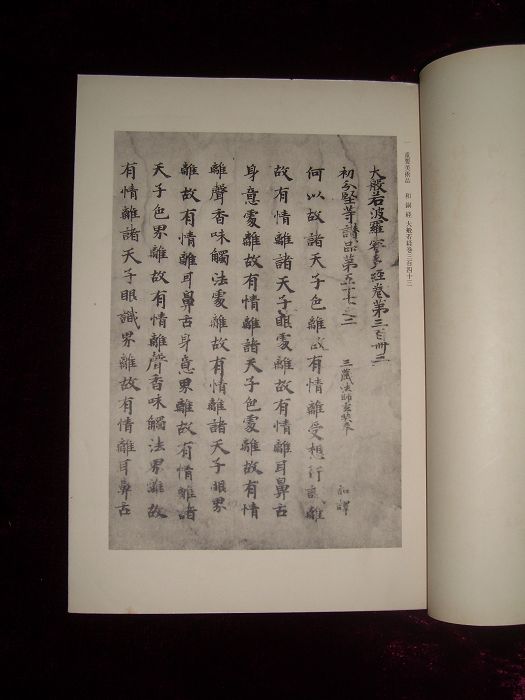 一 重要美術品 和銅経 大般若経巻三百四十三
大般若波羅蜜多経巻第三百卌三
初分堅等讃品第五十七之二 三蔵法師玄奘奉 詔譯
何以故諸天子色離故有情離受想行識離
故有情離諸天子眼處離故有情離耳鼻舌
身意處離故有情離諸天子色處離故有情
離聲香味觸法處離故有情離諸天子眼界
離故有情離耳鼻舌身意界離故有情離諸
天子色界離故有情離聲香味觸法界離故
有情離諸天子眼識界離故有情離耳鼻舌